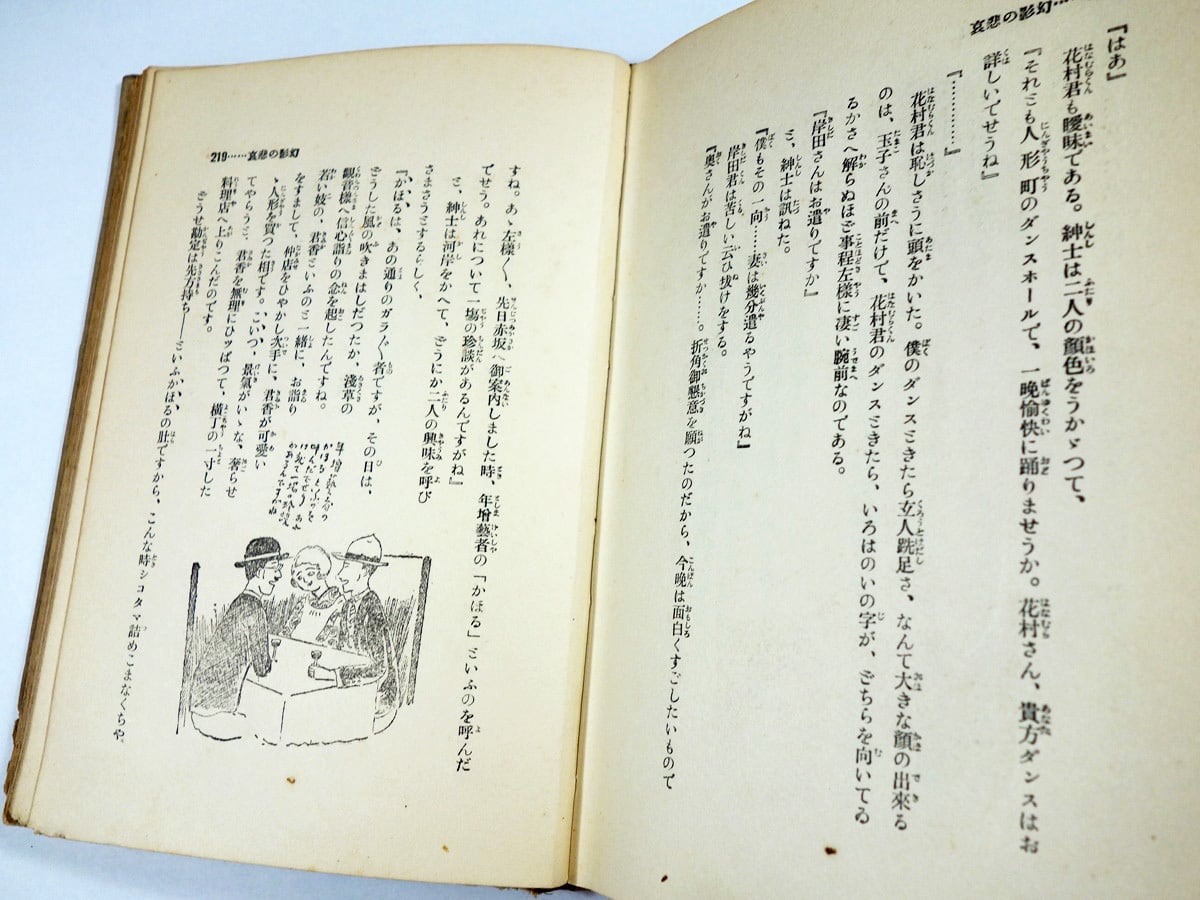 哀悲の影幻……
『はあ』
花村君も曖昧である。紳士は二人の顔色をうかゞつて、
『それとも人形町のダンスホールで、一晩愉快に踊りませうか。花村さん、貴方ダンスはお
詳しいでせうね』
『…………』
花村君は恥しさうに頭をかいた。僕のダンスときたら玄人跣足さ、なんて大きな顔の出來る
のは、玉子さんの前だけで、花村君のダンスときたら、いろはのいの字が、どちらを向いてゐ
るかさへ解らぬほど事程左樣に凄い腕前なのである。
『岸田さんはお遣りですか』
と、紳士は訊ねた。
『僕もその一向……妻は幾分遣るやうですがね』
岸田君は苦しい云ひ拔けをする。
『奧さんがお遣りですか……。折角御懇意を願つたのだから、今晩は面白くすごしたいもので
219……哀悲の影幻
すね。あゝ左樣〳〵、先日赤坂へ御案内しました時、年增藝者の「かほる」といふのを呼んだ
でせう。あれについて一塲の珍談があるんですがね』
と、紳士は河岸をかへて、どうにか二人の興味を呼び
さまさうとするらしく、
『かほるは、あの通りのガラ〳〵者ですが、その日は、
どうした風の吹きまはしだつたか、淺草の
觀音樣へ信心詣りの念を起したんですね。
若い妓の、君香といふのと一緒に、お詣り
をすまして、仲店をひやかし次手に、君香が可愛い
ゝ人形を買つた相です。こいつ、景氣がいゝな、奢らせ
てやらうと、君香を無理にひツぱつて、橫丁の一寸した
料理店へ上りこんだのです。
どうせ勘定は先方持ち――といふかほるの肚ですから、こんな時シコタマ詰めこまなくちや、
年增藝者の
かほるといふのを
呼んだでせう あれ
に就て一塲の珍談
があるんですがね